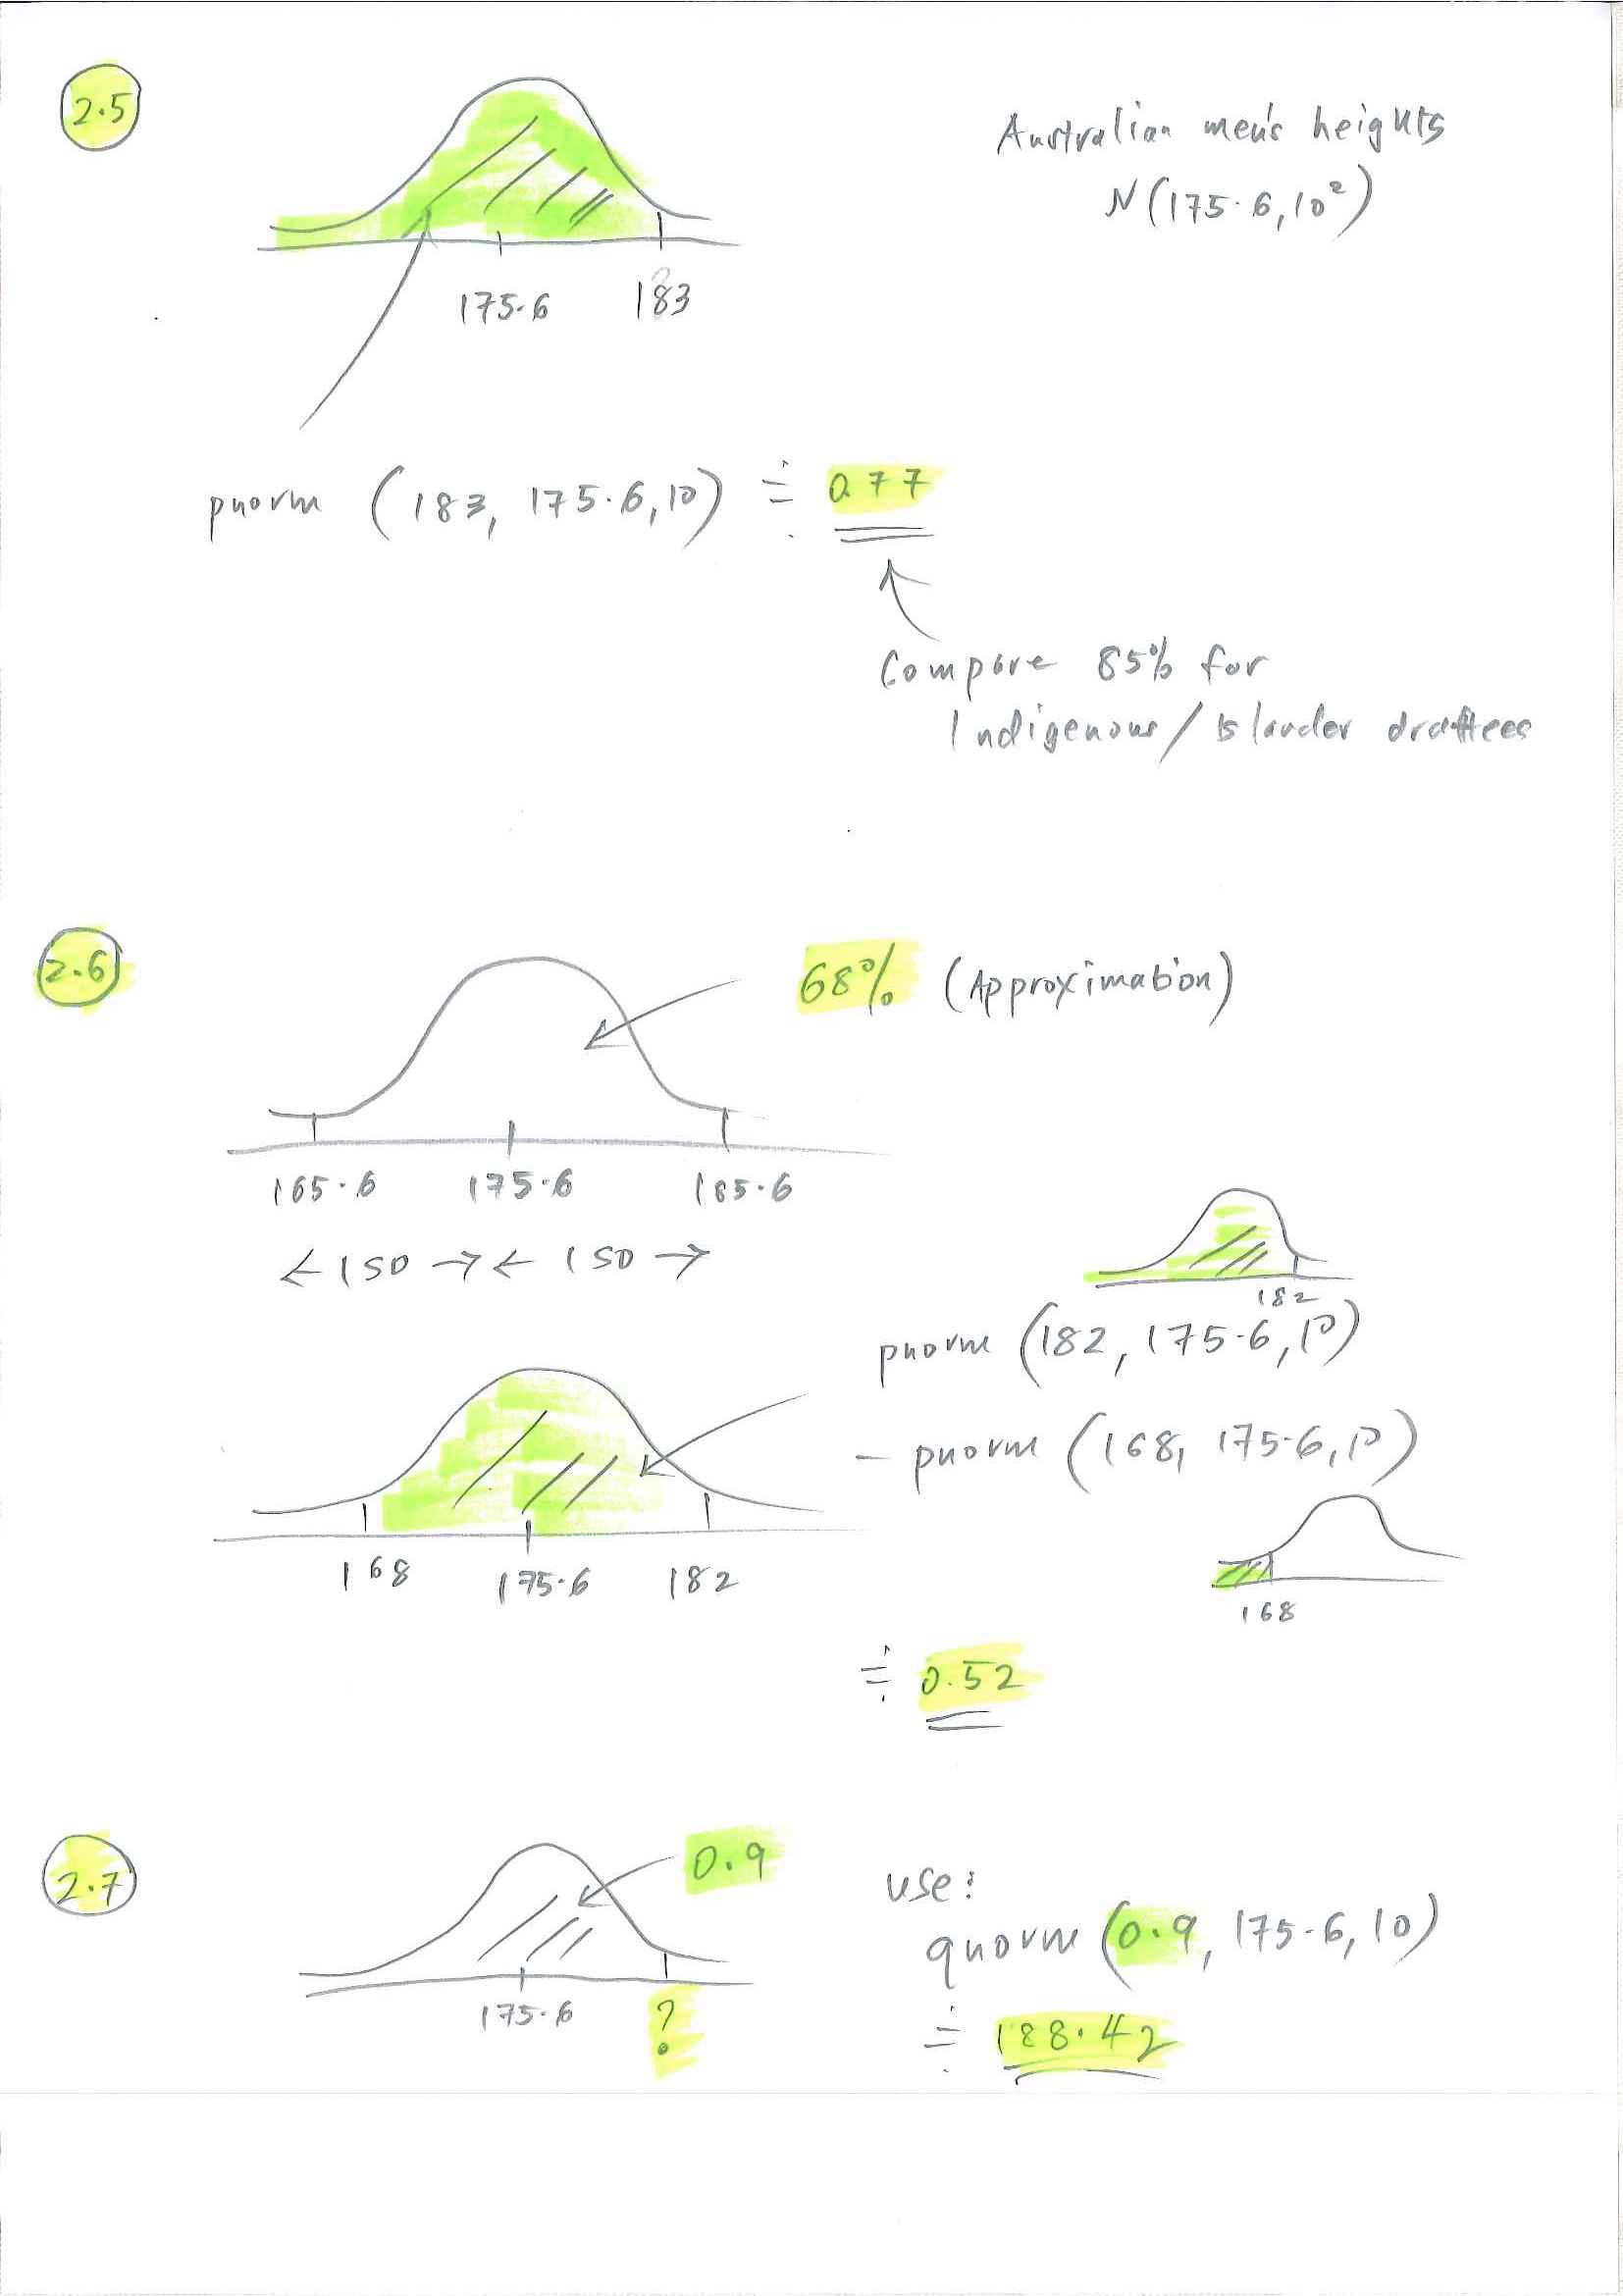 2.5
Australian men's heights
N(175.6, 10²)
175.6 183
pnorm (183, 175.6, 10) ≑ 0.77
Compare 85% for
Indigenous / Islander draftees
2.6
68% (Approximation)
165.6 175.6 185.6
← 1 SD → ← 1 SD →
182
pnorm (182, 175.6, 10)
− pnorm (168, 175.6, 10)
168 175.6 182
168
≑ 0.52
2.7
0.9
175.6 ?
use:
qnorm (0.9, 175.6, 10)
≑ 188.42